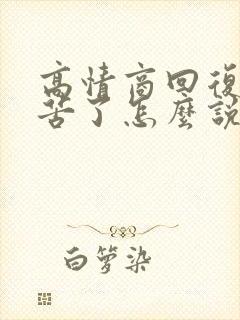 高情商回復
苦了怎麼說
白箩染